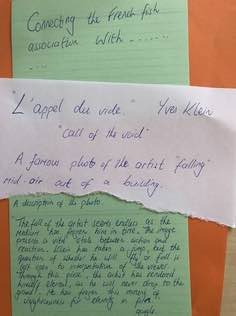 Connecting the French fish
association with .......
....
"L'appel du vide." Yves Klein
"call of the void"
A famous photo of the artist 'falling'
mid-air out of a building.
A description of the photo.
The fall of the artist seems endless as the
medium has frozen him in time. The image
presents a vital state between action and
reaction. Klein has taken a jump, but the
question of whether he will fly or fall is
left open to interpretation of the viewer.
Through this piece, the artist has rendered
himself eternal, as he will never drop to the
ground. He has frozen this moment of
for eternity in